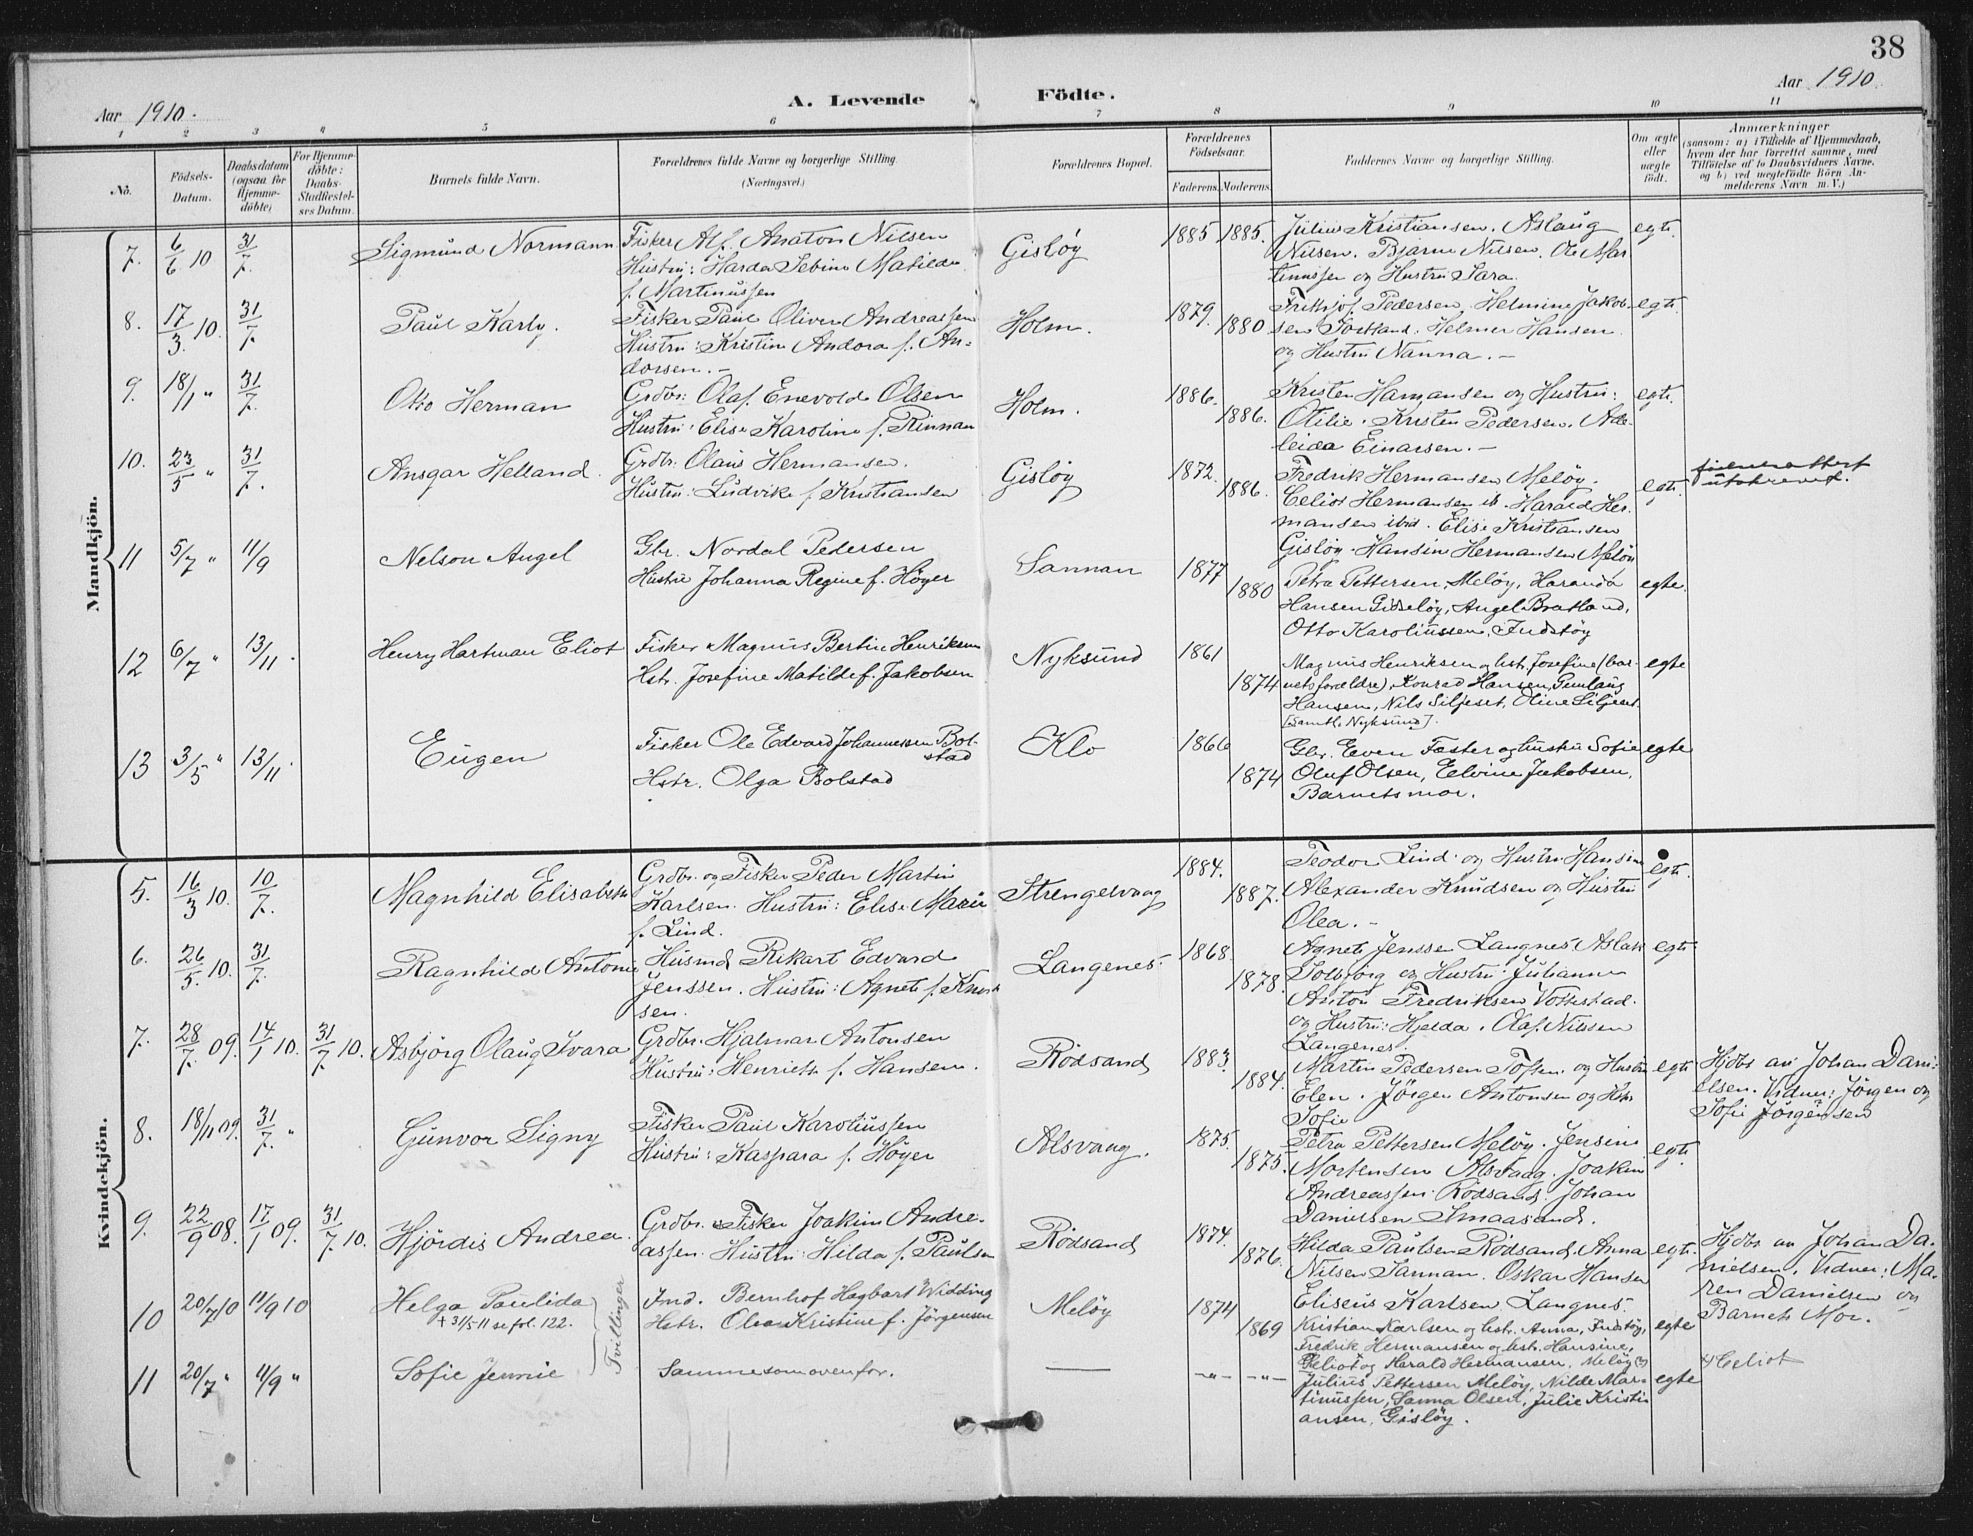 38
Aar 1910.
A. Levende Födte.
Aar 1910.
1 2 3 4 5 6 7 8 9 10 11
No.
Födsels-
Datum.
Daabsdatum
(ogsaa for
Hjemme-
döbte)
For Hjemme-
döbte:
Daabs-
Stadfæstel-
ses Datum.
Barnets fulde Navn.
Forældrenes fulde Navne og borgerlige Stilling.
(Næringsvei.)
Forældrenes Bopæl.
Forældrenes
Födselsaar.
Faderens. Moderens.
Faddernes Navne og borgerlige Stilling.
Om ægte
eller
uægte
födt.
Anmærkninger
(saasom: a) i Tilfælde af Hjemmedaab,
hvem der har forrettet samme, med
Tilföielse af to Daabsvidners Navne,
og b) ved uægtefödte Börn An-
melderens Navn m. V.)
Mandkjön.
7. 6/6 10 31/7. Sigmund Normann Fisker Alf Anaton Nilsen Gisløy 1885 1885. Julius Kristiansen. Aslaug egt.
Hustru: Harda Sebine Matilde Nilsen. Bjarne Nilsen. Ole Mar
f. Martinussen tinussen og Hustru Sara.
8. 17/3. 10. 31/7. Paul Karly. Fisker Paul Oliver Andreassen Holm. 1879. 1880 Fritjof Pedersen. Helmine Jakob- egt.
Hustru: Kristine Andora f. An- sen. Helmer Hansen
dorsen. – og Hustru Nanna. –
9. 18/11 " 31/7. Otto Herman Grdbr: Olaf Enevold Olsen Holm. 1886. 1886. Kristen Hansen og Hustru: egt.
Hustru: Elise Karoline f. Rinnan Otilie. Kristen Pedersen. Ade-
leida Einarsen. –
10. 23/5 " 31/7. Ansgar Helland. Grdbr: Olaus Hermansen. Gisløy 1872. 1886. Fredrik Hermansen Meløy. egt.
Hustru: Ludvike f. Kristiansen Celiot Hermansen ib. Harald Her-
mansen ibid. Elise Kristiansen
Gisløy. Hansine Hermansen Meløy
11 5/7 " 11/9 Nelson Angel Gbr. Nordal Pedersen Sannan 1877 1880 Petra Pettersen, Meløy, egte.
Hustru Johanna Regine f. Høyer Hansen Gisløy, Angel Bratland,
Otto Karoliussen, Indstøy
12 6/7 " 13/11. Henry Hartman Eliot Fisker Magnus Bertin Henriksen Nyksund 1861 1874 Magnus Henriksen og hstr. Josefine (bar- egte
Hstr. Josefine Matilde f. Jakobsen nets forældre), Konrad Hansen, Gunlaug
Hansen, Nils Siljeset, Oline Siljeset
[Samtl. Nyksund].
13 3/5 " 13/11. Eugen Fisker Ole Edvard Johannessen Bol- Klo 1866 1874 Gbr. Even Faster og hustru Sofie egte
stad
Hstr. Olga Bolstad Oluf Olsen, Elvine Jakobsen,
Barnets mor.
Kvindekjön.
5. 16/3 10. 10/7. Magnhild Elisabeth Grdbr. og Fisker Peder Martin Strengelvaag 1884. 1887. Teodor Lind og Hustru Hansine egt.
Karlsen. Hustru: Elise Marie Alexander Knudsen og Hustru
f. Lind. Olea. –
6. 26/5. 10. 31/7. Ragnhild Antonie Husmd Rikart Edvard Langenes. 1868. 1878. Agnete Jenssen Langnes. Aslak egt.
Jenssen. Hustru: Agnete f. Knut Solbjørg og Hustru: Julianne
sen. Anton Fredriksen Vottestad.
og Hustru: Hjelda. Olaf Nilssen
Langenes.
7. 28/7. 09. 14/1 10. 31/7. 10. Asbjörg Olaug Ivara Grdbr. Hjalmar Antonsen Rödsand 1883. 1884. Martin Pedersen og Hustru egt. Hjdbt av Johan Dani-
Hustru: Henriette f. Hansen. Elen. Jörgen Antonsen og Hstr. elsen. Vidner: Jörgen og
Sofie Sofie Jörgensen
8. 18/11 09. 31/7. " Gunvor Signy Fisker Paul Karoliussen Alsvaag. 1875. 1875. Petra Pettersen Meløy. Jensine egt.
Hustru: Kaspara f. Höyer Mortensen Alsvaag. Joakim
Andreassen Rödsand. Johan
Danielsen Smaasand.
9. 22/9 08. 17/1 09. 31/7. 10. Hjördis Andrea. Grdbr. & Fisker Joakim Andre- Rödsand 1874. 1876. Hilda Paulsen Rödsand. Anna egt. Hjdbt av Johan Da-
assen. Hustru: Hilda f. Paulsen Nilsen Sannan. Oskar Hansen nielsen. Vidner: Ma-
Eliseus Karlsen Langnes. ren Danielsen og
Barnets Mor.
10 20/7 10 11/9 10 Helga Paulida Ind. Bernhof Hagbart Widding Meløy 1874 1869 Kristian Karlsen og hstr. Anna, Indstøy, egte
+ 31/5-11 se fol. 122. Hstr. Olea Kristine f. Jörgensen Fredrik Hermansen og hstr. Hansine,
Celiot og Harald Hermansen, Meløy
Tvillinger
11 20/7 " 11/9 " Sofie Jennie Samme som ovenfor. —— -"- -"- Julius Pettersen Meløy, Nilde Mar- egte Celiot
tinussen, Sanna Olsen, Julie Kristi
ansen, Gisløy.